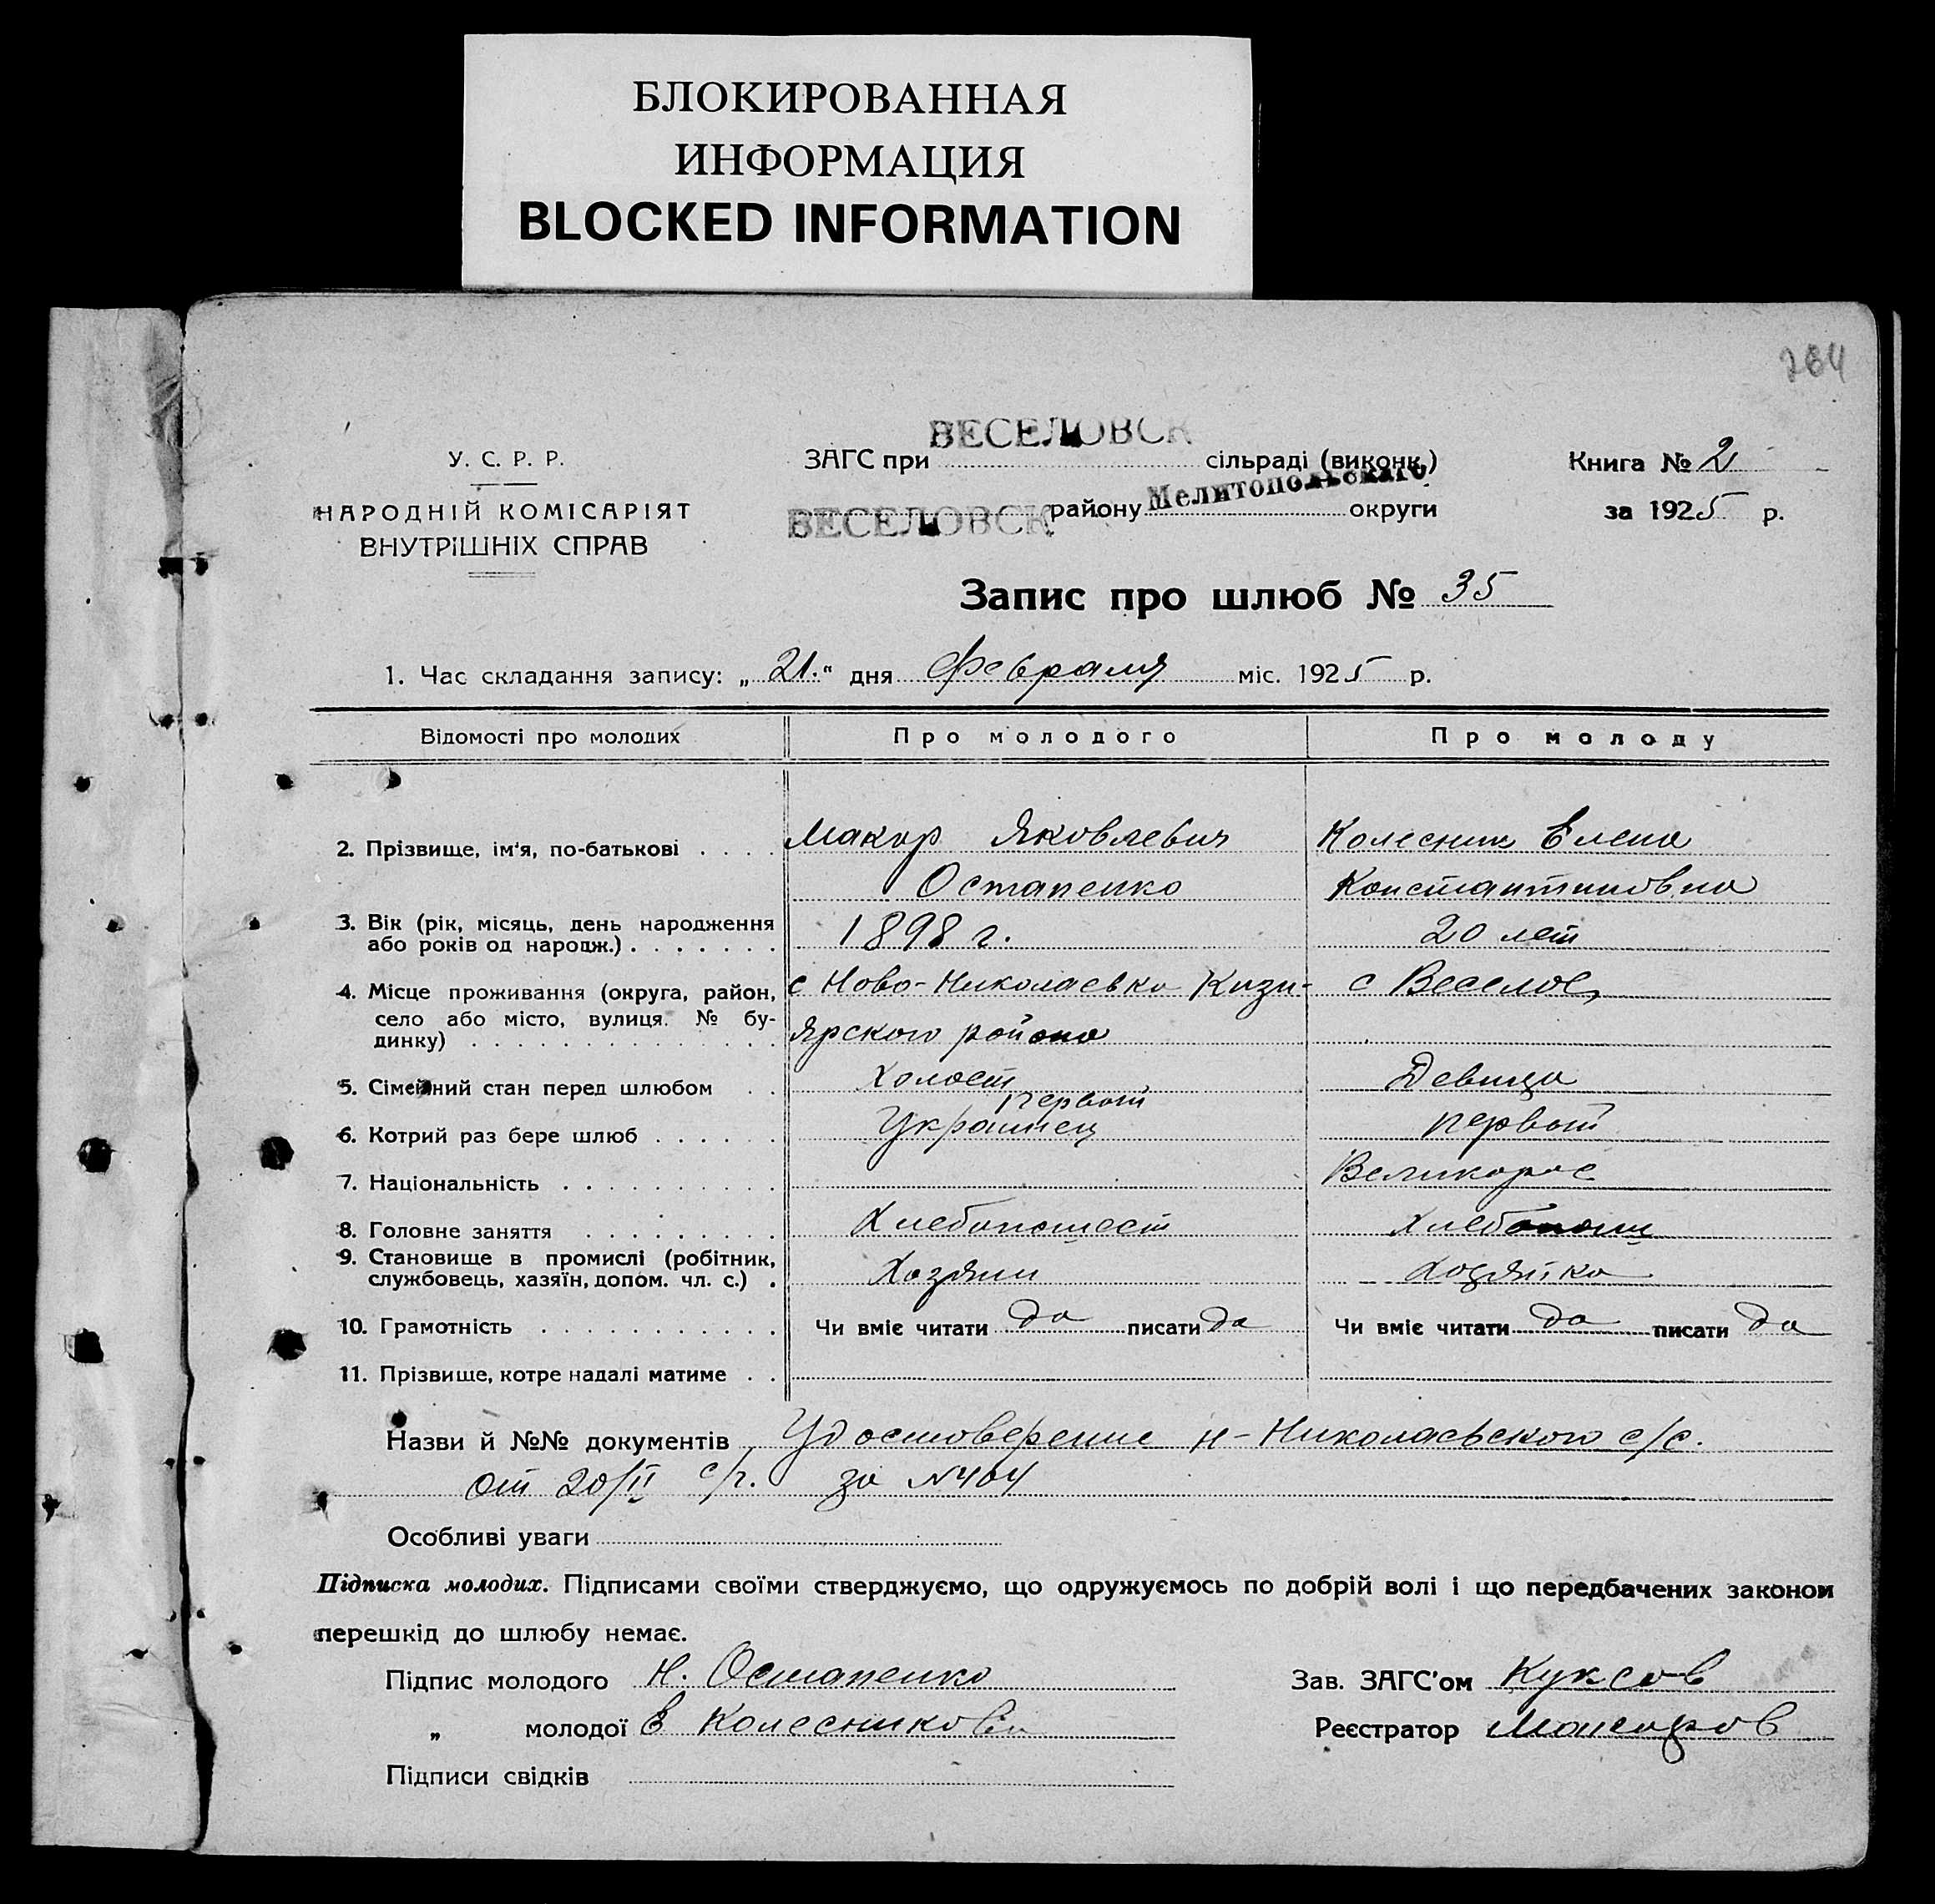 БЛОКИРОВАННАЯ
ИНФОРМАЦИЯ
BLOCKED INFORMATION
264
У. С. Р. Р.
НАРОДНІЙ КОМІСАРІЯТ
ВНУТРІШНІХ СПРАВ
ВЕСЕЛОВСК
ЗАГС при сільраді (виконк.)
ВЕСЕЛОВСК району Мелитопольскаго округи
Книга № 2
за 1925 р.
Запис про шлюб № 35
1. Час складання запису: „ 21. " дня Февраля міс. 1925 р.
Відомості про молодих Про молодого Про молоду
2. Прізвище, ім'я, по-батькові . . . . Макар Яковлевич Колесник Елена
Остапенко Константиновна
3. Вік (рік, місяць, день народження
або років од народж.) . . . . . . . 1898 г. 20 лет
4. Місце проживання (округа, район, с Ново-Николаевка Кизи- с Веселое
село або місто, вулиця. № бу-
динку) . . . . . . . . . . . . . . ярского района
5. Сімейний стан перед шлюбом . . Холост Девица
первый
6. Котрий раз бере шлюб . . . . . . Украинец первый
7. Національність . . . . . . . . . . Великорос
8. Головне заняття . . . . . . . . . Хлебопашест Хлебопаш
9. Становище в промислі (робітник,
службовець, хазяїн, допом. чл. с.) . Хозяин Хозяйка
10. Грамотність . . . . . . . . . . . Чи вміє читати да писати да Чи вміє читати да писати да
11. Прізвище, котре надалі матиме . .
Назви й №№ документів Удостоверение Н-Николаевского с/с.
от 20/II с/г. за №404
Особливі уваги
Підписка молодих. Підписами своїми стверджуємо, що одружуємось по добрій волі і що передбачених законом
перешкід до шлюбу немає.
Підпис молодого Н. Остапенко Зав. ЗАГС'ом Куксов
„ молодої Е Колесникова Реєстратор
Підписи свідків